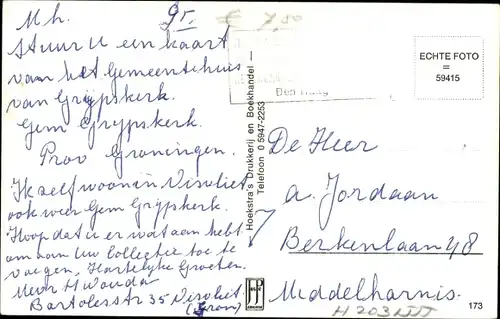 M.h.
Stuur u een kaart
van het Gemeentehuis
van Grijpskerk.
Gem Grijpskerk.
Prov Groningen.
Ik zelf woon in Visvliet
ook weer Gem Grijpskerk.
Hoop dat u er wat aan hebt
om aan uw Collectie toe te
voegen, Hartelijke Groeten.
Mevr H
Bartolesstr 35 Visvliet
(Gron)
€ 7,50
Den Haag
Hoekstra's Drukkerij en Boekhandel —
Telefoon 0 5947-2253
ECHTE FOTO
=
59415
De Heer
A. Jordaan
Berkenlaan 48
Middelharnis.
173